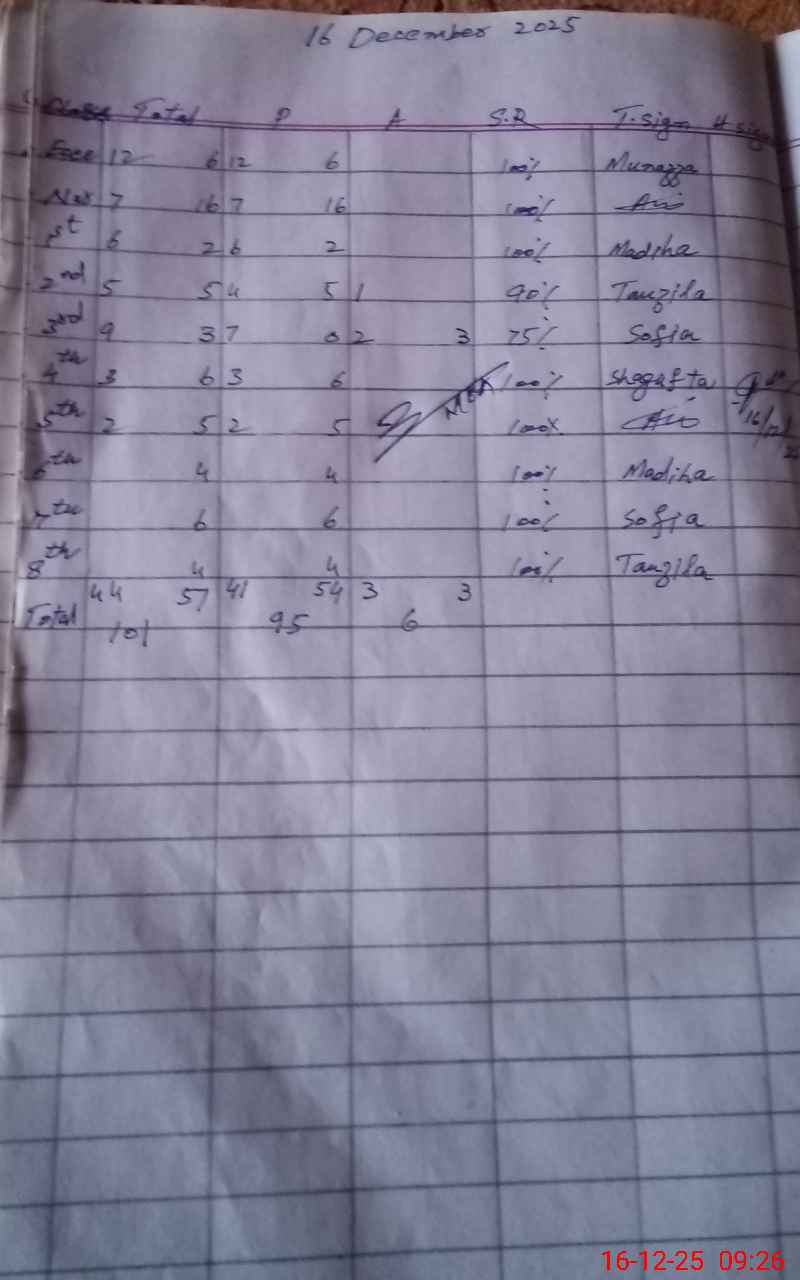 16 December 2025
Class Total P A S.R T.sign H sign
Ece 12 6 12 6 100% Munazza
Nur 7 16 7 16 100%
1st 6 2 6 2 100% Madiha
2nd 5 5 4 5 1 90% Tanzila
3rd 9 3 7 0 2 3 75% Sofia
4th 3 6 3 6 100% Shagufta
5th 2 5 2 5 100% 16/12/25
6th 4 4 100% Madiha
7th 6 6 100% Sofia
8th 4 4 100% Tanzila
44 57 41 54 3 3
Total 101 95 6
16-12-25 09:26